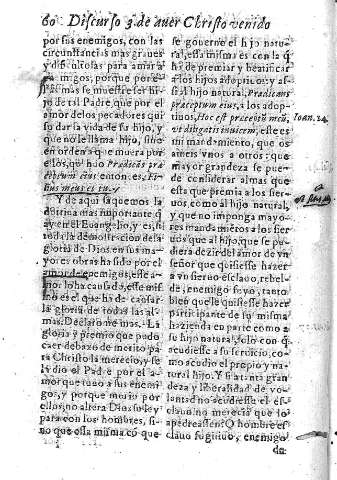 60 Discurso 3. de aver Christo venido
por sus enemigos, con las
circunstancias mas graves
y dificultosas para amar a
amigos, porque por e
mas se muestre ser hi-
jo de tal Padre, que por el
amor de los pecadores qui
so dar la vida de su hijo, y
que no le llama hijo, sino
en orden a que muera por
ellos, qũ huo Prædicãs præ
ceptum eius entonces, Fi-
lius meus es tu.
Y de aqui saquemos la
dotrina mas importante q̃
ay en el Evangelio, y es, si
toda la demõstraciõ de la
gloria de Dios en sus ma-
yores obras ha sido por el
amor de enemigos, esse a-
mor lo ha causado, esse mis
mo es el que ha de causar
la gloria de todas las al-
mas. Declarome mas. La
gloria y premio que pudo
caer debaxo de merito pa-
ra Christo la mereciò, y se
la dio el Padre por el a-
mor que tuvo a sus enemi
gos, y porque murio por
ellos, no altera Dios su ley
para con los hombres, si-
no que essa misma cõ que
se govierne el hijo natu-
ral, essa misma es con la
q̃ ha de premiar y beatificar
a los hijos adoptivos, y as-
si al hijo natural, Prædicans
præceptum eius, a los adop-
tivos, Hoc est præceptũ meũ,
ut diligatis invicem, este es
mi mandamiento, que os
ameis unos a otros: que
mayor grandeza se pue-
de considerar almas que
esta que premia a los sier-
vos, como al hijo natural,
y que no imponga mayo-
res mandamiẽtos a los sier
vos que al hijo, que se pu-
diera dezir del amor de vn
señor que quisiesse hazer
a vn siervo esclavo, rebel-
de, enemigo suyo, tanto
bien que le quisiesse hazer
participante de su misma
hazienda en parte como a
su hijo natural, solo con q̃
acudiesse a su servicio, co-
mo acudio el propio y na-
tural hijo. Y si a tanta gran
deza y liberalidad de vo-
luntad no acudiesse el es-
clavo, no mereciò que lo
apedreassen? O hombre es
clavo fugitivo, enemigo
de
Ioan. 14